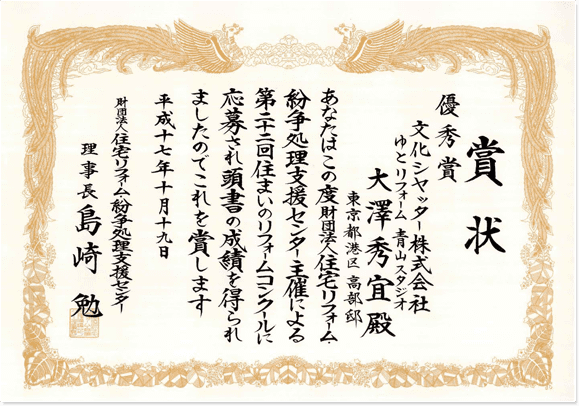 賞状
優秀賞
文化シヤッター株式会社
ゆとリフォーム 青山スタジオ
大澤秀宜殿
東京都港区 高部邸
あなたはこの度財団法人住宅リフォーム・
紛争処理支援センター主催による
第二十二回住まいのリフォームコンクールに
応募され頭書の成績を得られ
ましたのでこれを賞します
平成十七年十月十九日
財団法人住宅リフォーム・紛争処理支援センター
理事長 島崎 勉